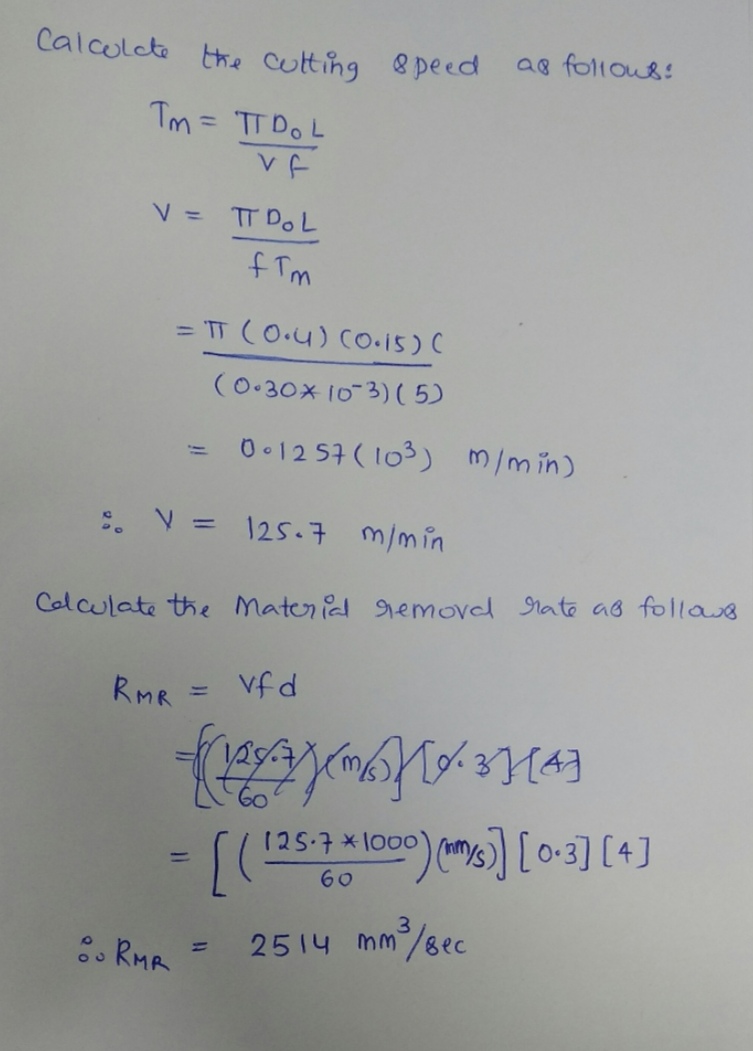 Calculate the cutting speed as follows:
Tm = π D₀ L / V f
V = π D₀ L / f Tm
= π (0.4) (0.15) ( / (0.30*10⁻³) (5)
= 0.1257 (10³) m/min)
∴ V = 125.7 m/min
Calculate the Material removal rate as follows
RMR = Vfd
= [(125.7 / 60) (m/s)] [0.3] [4]
= [(125.7*1000 / 60) (mm/s)] [0.3] [4]
∴ RMR = 2514 mm³/sec